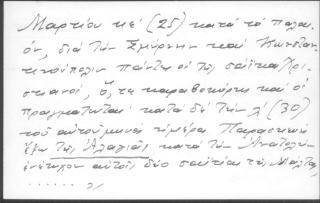 Μαρτίου κε' (25) κατὰ τὸ παλαι-
όν, διὰ τὴν Σμύρνην καὶ Κωνσταν-
τινούπολιν πάντες οἱ τῆς σαΐτιας Χρι-
στιανοί, ὅ,τε καραβοκύρης καὶ οἱ
πραγματευταί· κατὰ δὲ τὴν λ' (30)
τοῦ αὐτοῦ μηνὸς ἡμέρᾳ Παρασκευῇ
ἔξω τῆς Ἀλαγιᾶς κατὰ τὴν Ἀνατολὴν
ἐνέτυχον αὐτοῖς δύο σαΐτιαι τῆς Μάλτας,